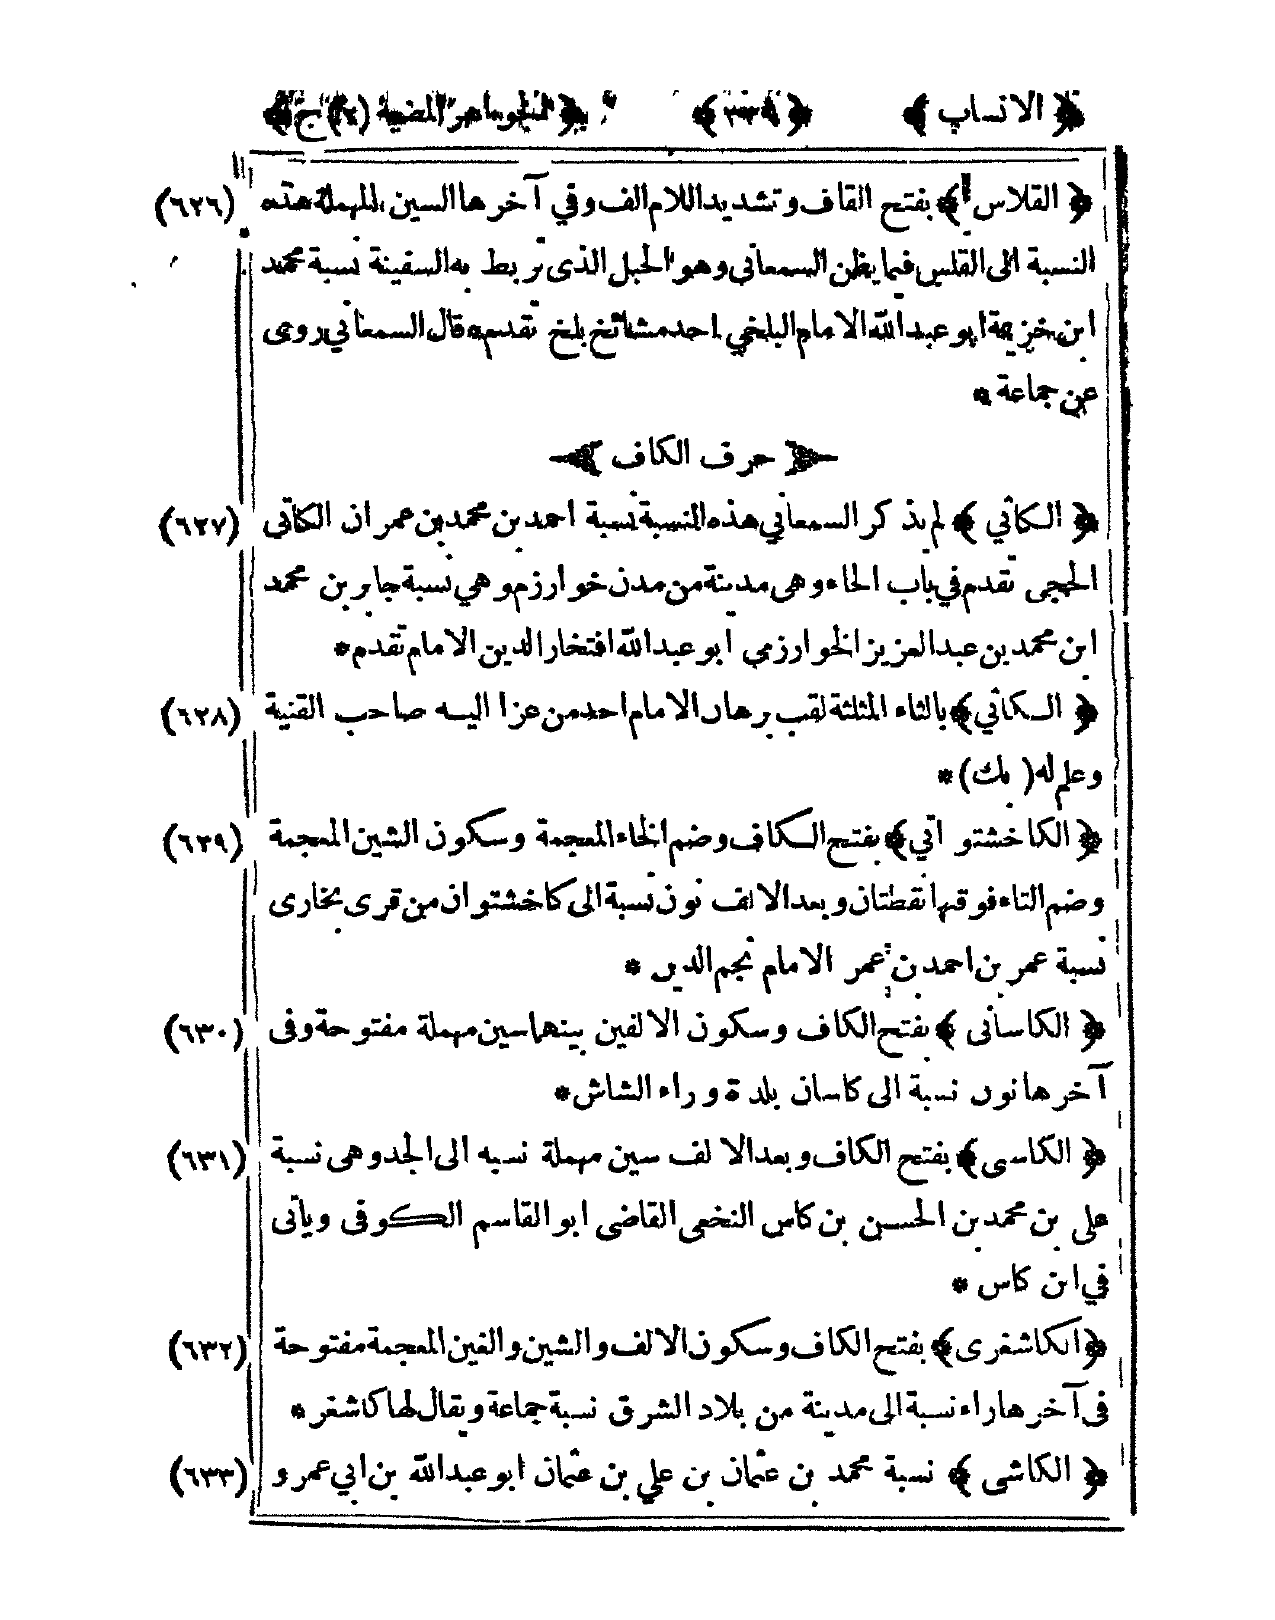 ﴿ الانساب ﴾ ﴿ ٣٣٩ ﴾ ﴿ الجواهر المضية (٢) ج ﴾
﴿ القلاس ﴾ بفتح القاف وتشديد اللام الف وفي آخرها السين المهملة هذه (٦٢٦)
النسبة الى القلس فيما يظن السمعاني وهو الحبل الذى تربط به السفينة نسبة محمد
ابن خزيمة ابو عبد الله الامام البلخي احد مشائخ بلخ تقدم قال السمعاني روى
عن جماعة *
﴿ حرف الكاف ﴾
﴿ الكاثي ﴾ لم يذكر السمعاني هذه النسبة نسبة احمد بن محمد بن عمران الكاثي (٦٢٧)
الحجى تقدم في باب الحاء وهى مدينة من مدن خوارزم وهي نسبة جابر بن محمد
ابن محمد بن عبد العزيز الخوارزمي ابو عبد الله افتخار الدين الامام تقدم *
﴿ الكاثي ﴾ بالثاء المثلثة لقب برهان الامام احد من عزا اليه صاحب القنية (٦٢٨)
وعلم له ( بك ) *
﴿ الكاخشتواني ﴾ بفتح الكاف وضم الخاء المعجمة وسكون الشين المعجمة (٦٣٩)
وضم التاء فوقها نقطتان وبعد الالف نون نسبة الى كاخشتوان من قرى بخارى
نسبة عمر بن احمد بن عمر الامام نجم الدين *
﴿ الكاسانى ﴾ بفتح الكاف وسكون الالفين بينهما سين مهملة مفتوحة وفى (٦٣٠)
آخرها نون نسبة الى كاسان بلدة وراء الشاش *
﴿ الكاسى ﴾ بفتح الكاف وبعد الالف سين مهملة نسبه الى الجد وهى نسبة (٦٣١)
على بن محمد بن الحسن بن كاس النخعى القاضى ابو القاسم الكوفى ويأتى
في ابن كاس *
﴿ الكاشغرى ﴾ بفتح الكاف وسكون الالف والشين والغين المعجمة مفتوحة (٦٣٢)
فى آخرها راء نسبة الى مدينة من بلاد الشرق نسبة جماعة ويقال لها كاشغر *
﴿ الكاشى ﴾ نسبة محمد بن عثمان بن علي بن عثمان ابو عبد الله بن ابي عمرو (٦٣٣)